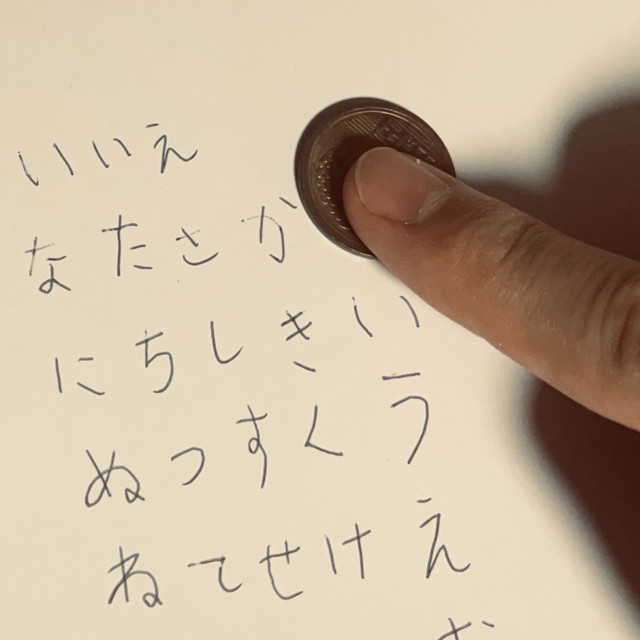 いいえ
なたさか
にちしきい
ぬつすくう
ねてせけえ